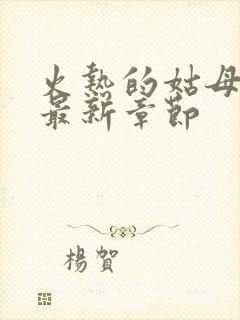 火熱的姑母
最新章節
楊賀